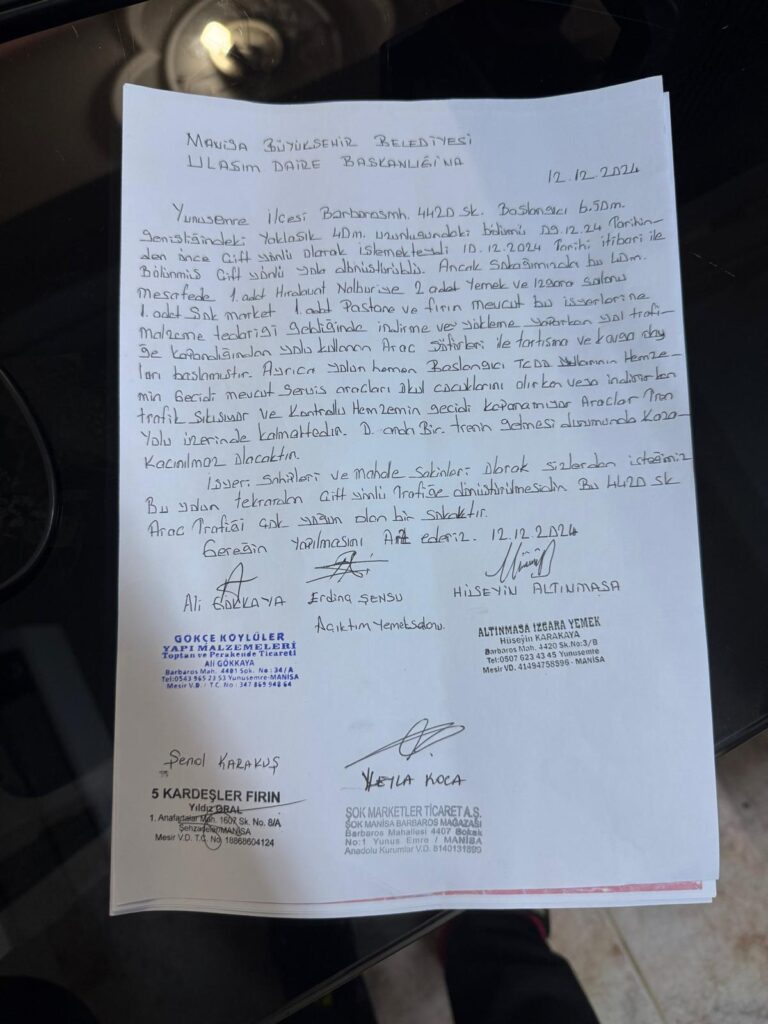 MANİSA BÜYÜKSEHİR BELEDİYESİ
ULASIM DAİRE BASKANLIĞINA
12.12.2024
Yunusemre İlcesi Barbarosmh. 4420 sk. Baslangıcı 6.50m.
genisliğindeki Yaklasık 40m. uzunluğundaki bölümü 09.12.24 Tarihin-
den önce Cift yönlü olarak islemekteydi 10.12.2024 Tarihi itibari ile
Bölünmüs Cift yönlü yola dönüstürüldü. Ancak Sokağımızda bu 40m.
mesafede 1 adet Hırdavat Nalburiye 2 adet Yemek ve Izgara salonu
1.adet Sok market 1 adet Pastane ve fırın mevcut bu isyerlerine
malzeme tedariği geldiğinde indirme ve yükleme yaparken yol trafi-
ğe kapandığından yolu kullanan Arac Söförleri ile tartısma ve kavga olay
ları baslamıstır. Ayrıca yolun hemen Baslangıcı TCDD Yollarının Hemze-
min Gecidi mevcut Servis aracları Okul cocuklarını alırken veya indirirken
trafik Sıkısıyor ve Kontrollu Hemzemin gecidi kapanamıyor Araclar Tren
Yolu üzerinde kalmaktedır. O anda Bir tren gelmesi durumunda Kaza
Kacınılmaz olacaktır.
İsyeri Sahibleri ve Mahale Sakinleri Olarak sizlerden isteğimiz
Bu yolun tekrardan Cift yönlü Trafiğe dönüstürülmesidir. Bu 4420 sk
Arac Trafiği cok yoğun olan bir sokaktır.
Gereğin Yapılmasını Arz ederiz. 12.12.2024
Ali GÖKKAYA Erdinç ŞENSU HÜSEYİN ALTINMASA
Açıktım Yemeksalonu.
GÖKÇE KÖYLÜLER
YAPI MALZEMELERİ
Toptan ve Perakende Ticareti
Ali GÖKKAYA
Barbaros Mah. 4401 Sok. No:34/A
Tel:0543 965 23 53 Yunusemre-MANİSA
Mesir V.D. / T.C. No: 347 869 948 64
ALTINMASA IZGARA YEMEK
Hüseyin KARAKAYA
Barbaros Mah. 4420 Sk.No:3/B
Tel:0507 623 43 45 Yunusemre
Mesir VD. 41494758596 - MANİSA
Şenol KARAKUŞ
LEYLA KOCA
5 KARDEŞLER FIRIN
Yıldız ORAL
1. Anafartalar Mah. 1607 Sk. No. 8/A
Şehzadeler/MANİSA
Mesir V.D. T.C. No 18868604124
ŞOK MARKETLER TİCARET A.Ş.
ŞOK MANİSA BARBAROS MAĞAZASI
Barbaros Mahallesi 4407 Sokak
No:1 Yunus Emre / MANİSA
Anadolu Kurumlar V.D. 8140131899